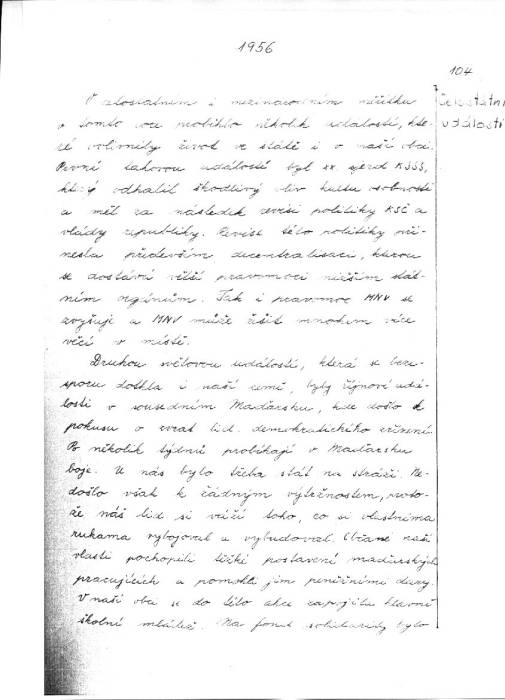 1956
104
Celostátní
události
V celostátním i mezinárodním měřítku
v tomto roce proběhlo několik událostí, kte-
ré ovlivnily život ve státě i v naší obci.
První takovou událostí byl XX. sjezd KSSS,
který odhalil škodlivý vliv kultu osobnosti
a měl za následek revisi politiky KSČ a
vlády republiky. Revise této politiky při-
nesla především decentralisaci, kterou
se dostává větší pravomoci nižším stát-
ním orgánům. Tak i pravomoc MNV se
zvyšuje a MNV může řešit mnohem více
věcí v místě.
Druhou světovou událostí, která se beze-
sporu dotkla i naší země, byly říjnové udá-
losti v sousedním Maďarsku, kde došlo k
pokusu o zvrat lid. demokratického zřízení.
Po několik týdnů probíhají v Maďarsku
boje. U nás bylo třeba stát na stráži. Ne-
došlo však k žádným výtržnostem, proto-
že náš lid si váží toho, co si vlastníma
rukama vybojoval a vybudoval. Občané naší
vlasti pochopili těžké postavení maďarských
pracujících a pomohli jim peněžními dary.
V naší obci se do této akce zapojila hlavně
školní mládež. Na fond solidarity bylo